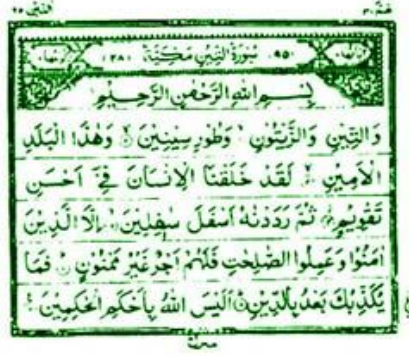 التين ٩٥
عمّ ٣٠
(٩٥) سُوْرَةُ التِّيْنِ مَكِّيَّةٌ (٢٨)
بِسْمِ اللهِ الرَّحْمٰنِ الرَّحِيْمِ
وَالتِّيْنِ وَالزَّيْتُوْنِ ۙ وَطُوْرِ سِيْنِيْنَ ۙ وَهٰذَا الْبَلَدِ
الْاَمِيْنِ ۙ لَقَدْ خَلَقْنَا الْاِنْسَانَ فِيْٓ اَحْسَنِ
تَقْوِيْمٍ ۫ ثُمَّ رَدَدْنٰهُ اَسْفَلَ سٰفِلِيْنَ ۙ اِلَّا الَّذِيْنَ
اٰمَنُوْا وَعَمِلُوا الصّٰلِحٰتِ فَلَهُمْ اَجْرٌ غَيْرُ مَمْنُوْنٍ ؕ فَمَا
يُكَذِّبُكَ بَعْدُ بِالدِّيْنِ ؕ اَلَيْسَ اللهُ بِاَحْكَمِ الْحٰكِمِيْنَ